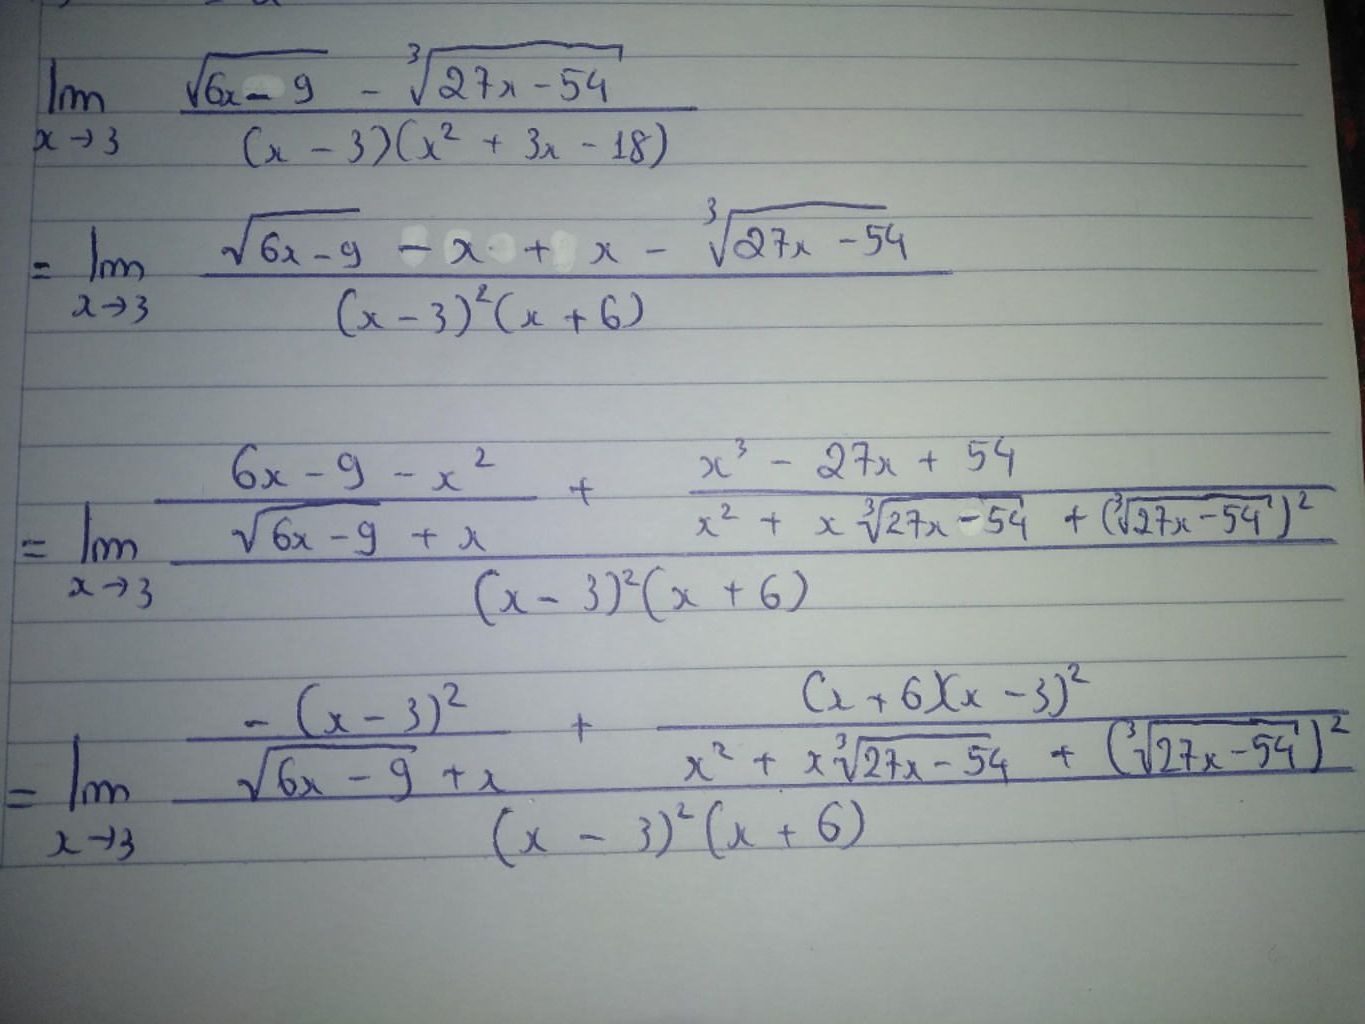 lim x→3 (√(6x - 9) - ∛(27x - 54)) / ((x - 3)(x² + 3x - 18))
= lim x→3 (√(6x - 9) - x + x - ∛(27x - 54)) / ((x - 3)²(x + 6))
= lim x→3 ((6x - 9 - x²) / (√(6x - 9) + x) + (x³ - 27x + 54) / (x² + x∛(27x - 54) + (∛(27x - 54))²)) / ((x - 3)²(x + 6))
= lim x→3 (-(x - 3)² / (√(6x - 9) + x) + (x + 6)(x - 3)² / (x² + x∛(27x - 54) + (∛(27x - 54))²)) / ((x - 3)²(x + 6))